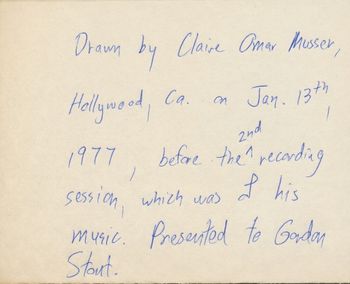 Drawn by Claire Omar Musser,
Hollywood, Ca. on Jan. 13th,
1977, before the 2nd recording
session, which was of his
music. Presented to Gordon
Stout.